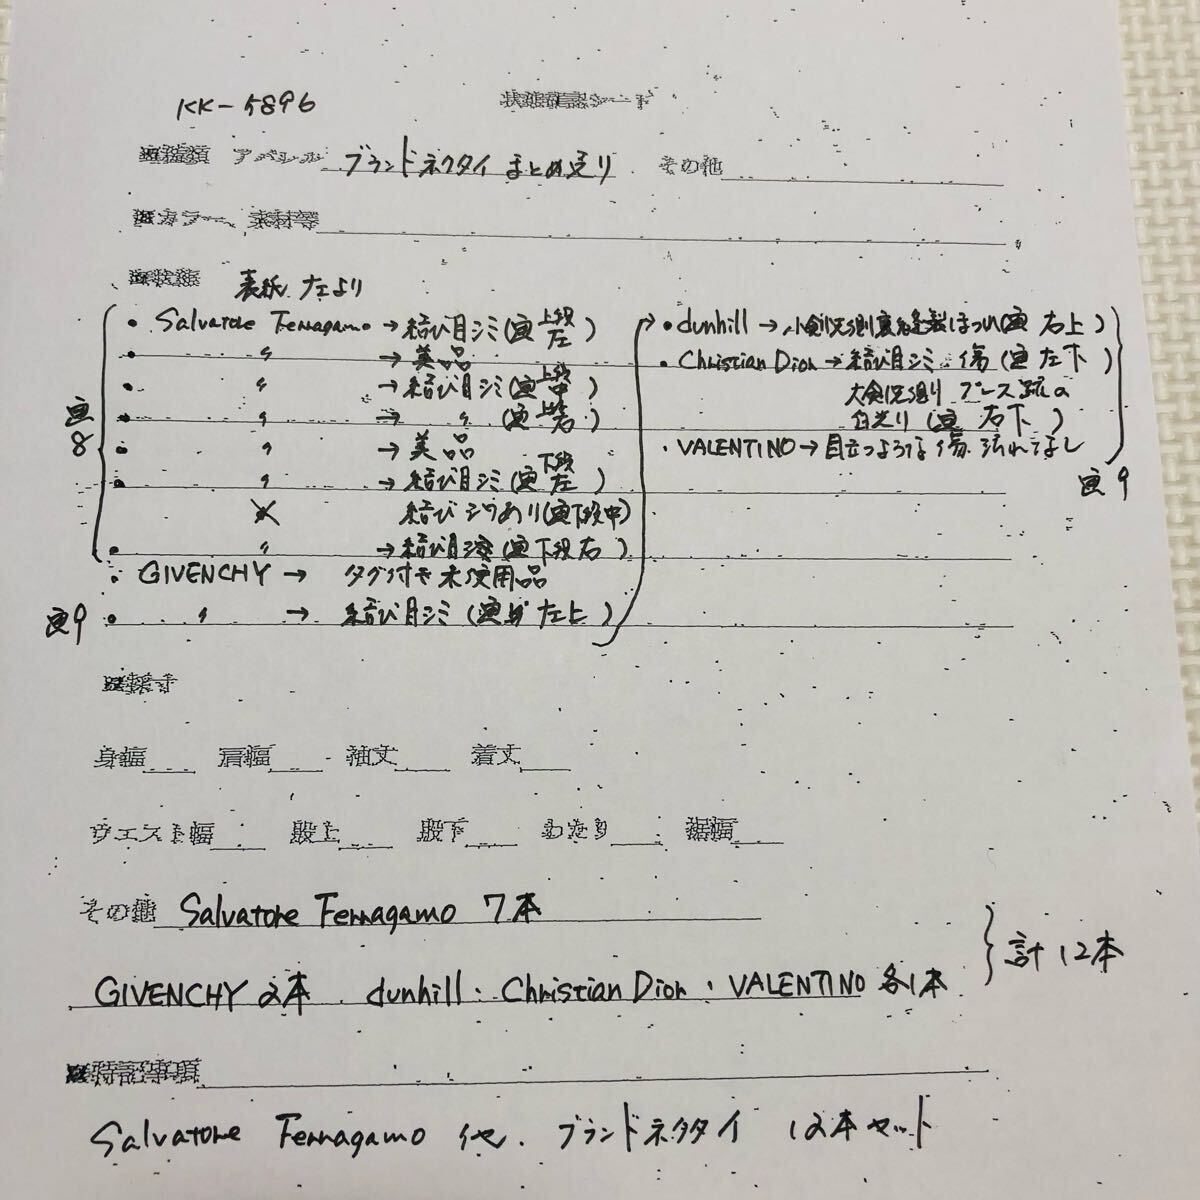 KK-5896
状態確認シート
■種類 アパレル ブランドネクタイ まとめ売り その他
■カラー、素材等
■状態 表紙 左より
・Salvatore Ferragamo→結び目シミ(画 上段左)
・〃→美品
・〃→結び目シミ(画 上段中)
・〃→〃(画 上段右)
・〃→美品
・〃→結び目シミ(画 下段左)
結びシワあり(画下段中)
・〃→結び目(画下段右)
画8
・GIVENCHY→タグ付き未使用品
・〃→結び目シミ(画9左上)
画9
・dunhill→小剣側裏縫製ほつれ(画右上)
・Christian Dior→結び目シミ、傷(画左下)
大剣側 プレス跡の
白光り(画右下)
・VALENTINO→目立つような傷汚れてなし
画9
■採寸
身幅 肩幅 袖丈 着丈
ウエスト幅 股上 股下 わたり 裾幅
その他 Salvatore Ferragamo 7本
GIVENCHY 2本 dunhill・Christian Dior・VALENTINO 各1本
計12本
■特記事項
Salvatore Ferragamo 他、ブランドネクタイ 12本セット